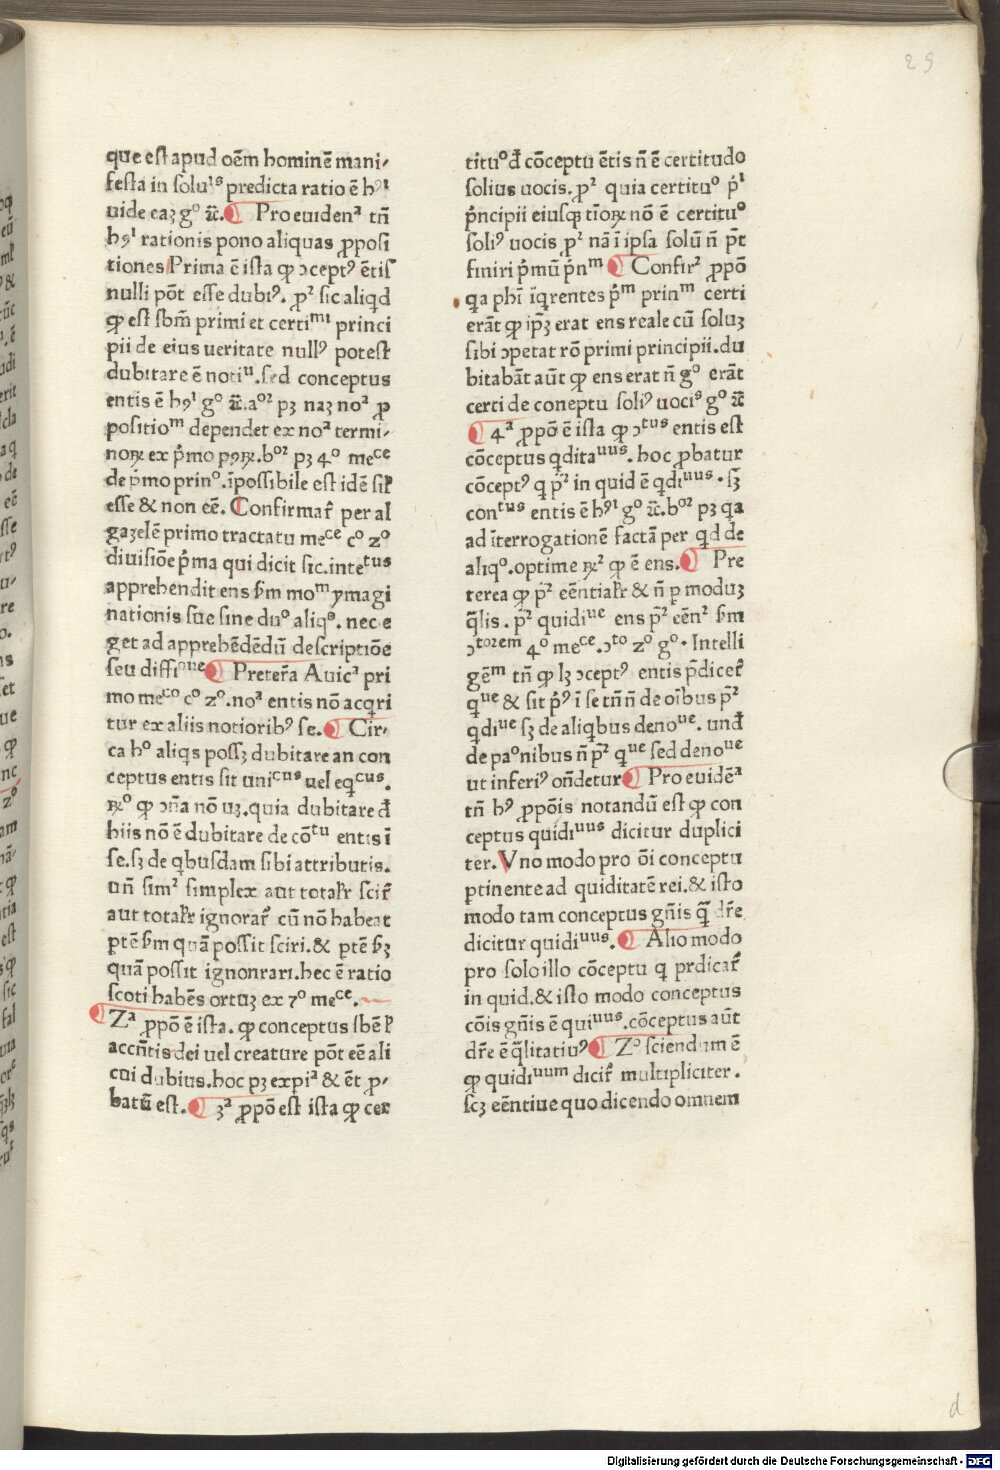 25
que est apud oēm hominē mani-
festa in soluⁱˢ predicta ratio ē hꝰⁱ
uide eaʒ gᵒ ⁊c̄. ¶ Pro euidenᵃ tñ
hꝰⁱ rationis pono aliquas ꝓposi
tiones Prima ē ista ꝙ ↄceptꝰ ētis
nulli pōt esse dubiꝰ. pᶻ sic aliqd
ꝙ est sbm̄ primi et certiᵐⁱ princi
pii de eius ueritate nullꝰ potest
dubitare ē notiᵘ. sed conceptus
entis ē hꝰⁱ gᵒ ⁊c̄. aᵒᶻ pʒ naʒ noᵃ ꝓ
positioᵐ dependet ex noᵃ termi-
noꝝ ex p̍mo pꝰoꝝ. bᵒᶻ pʒ 4ᵒ meᶜᵉ
de p̍mo prinᵒ. īpossibile est idē sil̍
esse & non eē. Confirmat̍ per al
gazelē primo tractatu meᶜᵉ cᵒ zᵒ
diuisiōe p̍ma qui dicit sic. inteᵗᵘˢ
apprehendit ens ẜm moᵐ ymagi
nationis sue sine duᵒ aliqᵒ. nec e
get ad apprehēdēdū descriptiōe
seu diffiᵒⁿᵉ ¶ Preter̄a Auicᵃ pri
mo meᶜᵒ cᵒ zᵒ. noᵃ entis nō acq̍ri
tur ex aliis notioribꝰ se. ¶ Cir-
ca hᵒ aliqs possʒ dubitare an con
ceptus entis sit uniᶜᵘˢ uel eqᶜᵘˢ.
ꝶᵒ ꝙ ↄñā nō uʒ. quia dubitare đ
hiis nō ē dubitare de cōᵗᵘ entis ī
se. sʒ de qbusdam sibi attributis.
uñ simᶻ simplex aut total̍r scit̍
aut total̍r ignorat̍ cū nō habeat
ptē ẜm quā possit sciri. & ptē ẜʒ
quā possit ignonrari. hec ē ratio
scoti habēs ortuʒ ex 7ᵒ meᶜᵉ.
¶ Zᵃ ꝓpō ē ista. ꝙ conceptus sbē l̍
accñtis dei uel creature pōt eē ali
cui dubius. hoc pʒ expiᵃ & ēt ꝓ-
batū est. ¶ 3ᵃ ꝓpō est ista ꝙ cer
tituᵒ đ cōceptu ētis ñ ē certitudo
solius uocis. pᶻ quia certituᵒ p̍ⁱ
p̍ncipii eiusqꝫ t̄ioꝝ nō ē certituᵒ
soliꝰ uocis pᶻ nā ī ipsa solū ñ p̄t
finiri p̍mū p̍nᵐ ¶ Confirᶻ ꝓpō
qa phi īqrentes p̍ᵐ prinᵐ certi
erāt ꝙ ipʒ erat ens reale cū soluʒ
sibi ↄpetat rō primi principii. du
bitabāt aūt ꝙ ens erat ñ gᵒ erāt
certi de coneptu soliꝰ uociˢ gᵒ ⁊c̄
¶ 4ᵃ ꝓpō ē ista ꝙ ↄᵗᵘˢ entis est
cōceptus qditaᵘᵘˢ. hoc ꝓbatur
cōceptꝰ q p̄ᶻ in quid ē qdiᵘᵘˢ. sʒ
conᵗᵘˢ entis ē hꝰⁱ gᵒ ⁊c̄. bᵒᶻ pʒ qa
ad īterrogationē factā per qd de
aliqᵒ. optime ꝶᶻ ꝙ ē ens. ¶ Pre
terea ꝙ p̄ᶻ eēntial̍r & ñ p moduʒ
q̄lis. p̄ᶻ quidiᵘᵉ ens p̄ᶻ eēnᶻ ẜm
ↄᵗᵒʳᵉᵐ 4ᵒ meᶜᵉ. ↄᵗᵒ zᵒ gᵒ. Intelli
gēᵐ tñ ꝙ lʒ ↄceptꝰ entis p̄dicet̍
qᵘᵉ & sit p̍ꝰ ī se tñ ñ de oībus p̄ᶻ
qdiᵘᵉ sʒ de aliqbus denoᵘᵉ. unđ
de paᵒnibus ñ p̄ᶻ qᵘᵉ sed denoᵘᵉ
ut inferiꝰ oñdetur ¶ Pro euidēᵃ
tñ hꝰ ꝓpōis notandū est ꝙ con
ceptus quidiᵘᵘˢ dicitur duplici
ter. Vno modo pro ōi conceptu
ptinente ad quiditatē rei. & isto
modo tam conceptus gñis q̄ dr̄e
dicitur quidiᵘᵘˢ. ¶ Alio modo
pro solo illo cōceptu q prdicat̍
in quid. & isto modo conceptus
cōis gñis ē quiᵘᵘˢ. cōceptus aūt
dr̄e ē q̄litatiuꝰ ¶ Zᵒ sciendum ē
ꝙ quidiᵘᵘᵐ dicit̍ multipliciter.
scʒ eēntiue quo dicendo omnem
d
Digitalisierung gefördert durch die Deutsche Forschungsgemeinschaft - DFG